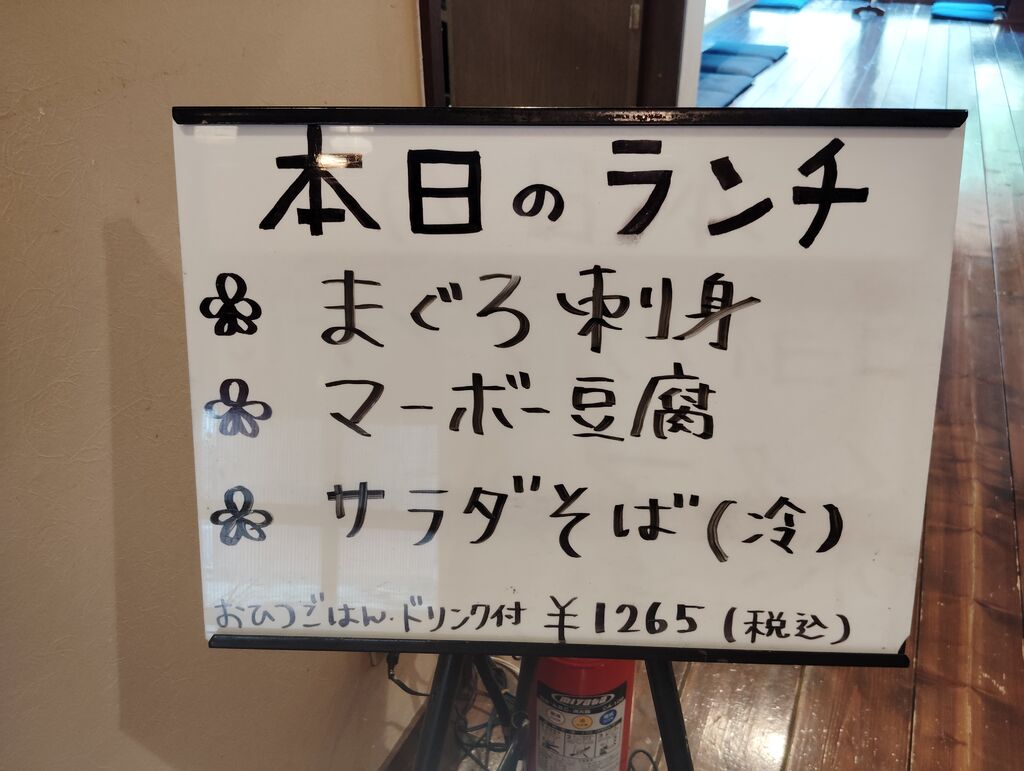 本日のランチ
まぐろ刺身
マーボー豆腐
サラダそば(冷)
おひつごはん・ドリンク付 ¥1265(税込)
miyata